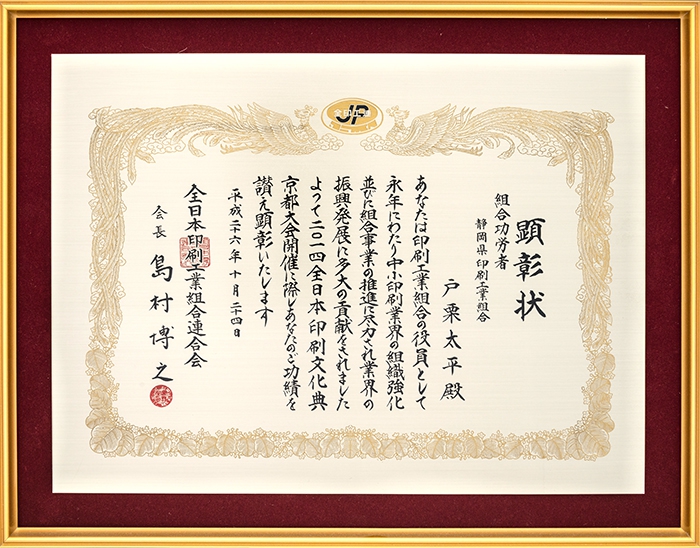 顕彰状
組合功労者
静岡県印刷工業組合
戸栗太平殿
あなたは印刷工業組合の役員として
永年にわたり中小印刷業界の組織強化
並びに組合事業の推進に尽力され業界の
振興発展に多大の貢献をされました
よって二〇一四全日本印刷文化典
京都大会開催に際しあなたのご功績を
讃え顕彰いたします
平成二十六年十月二十四日
全日本印刷工業組合連合会
会長 島村博之
JP